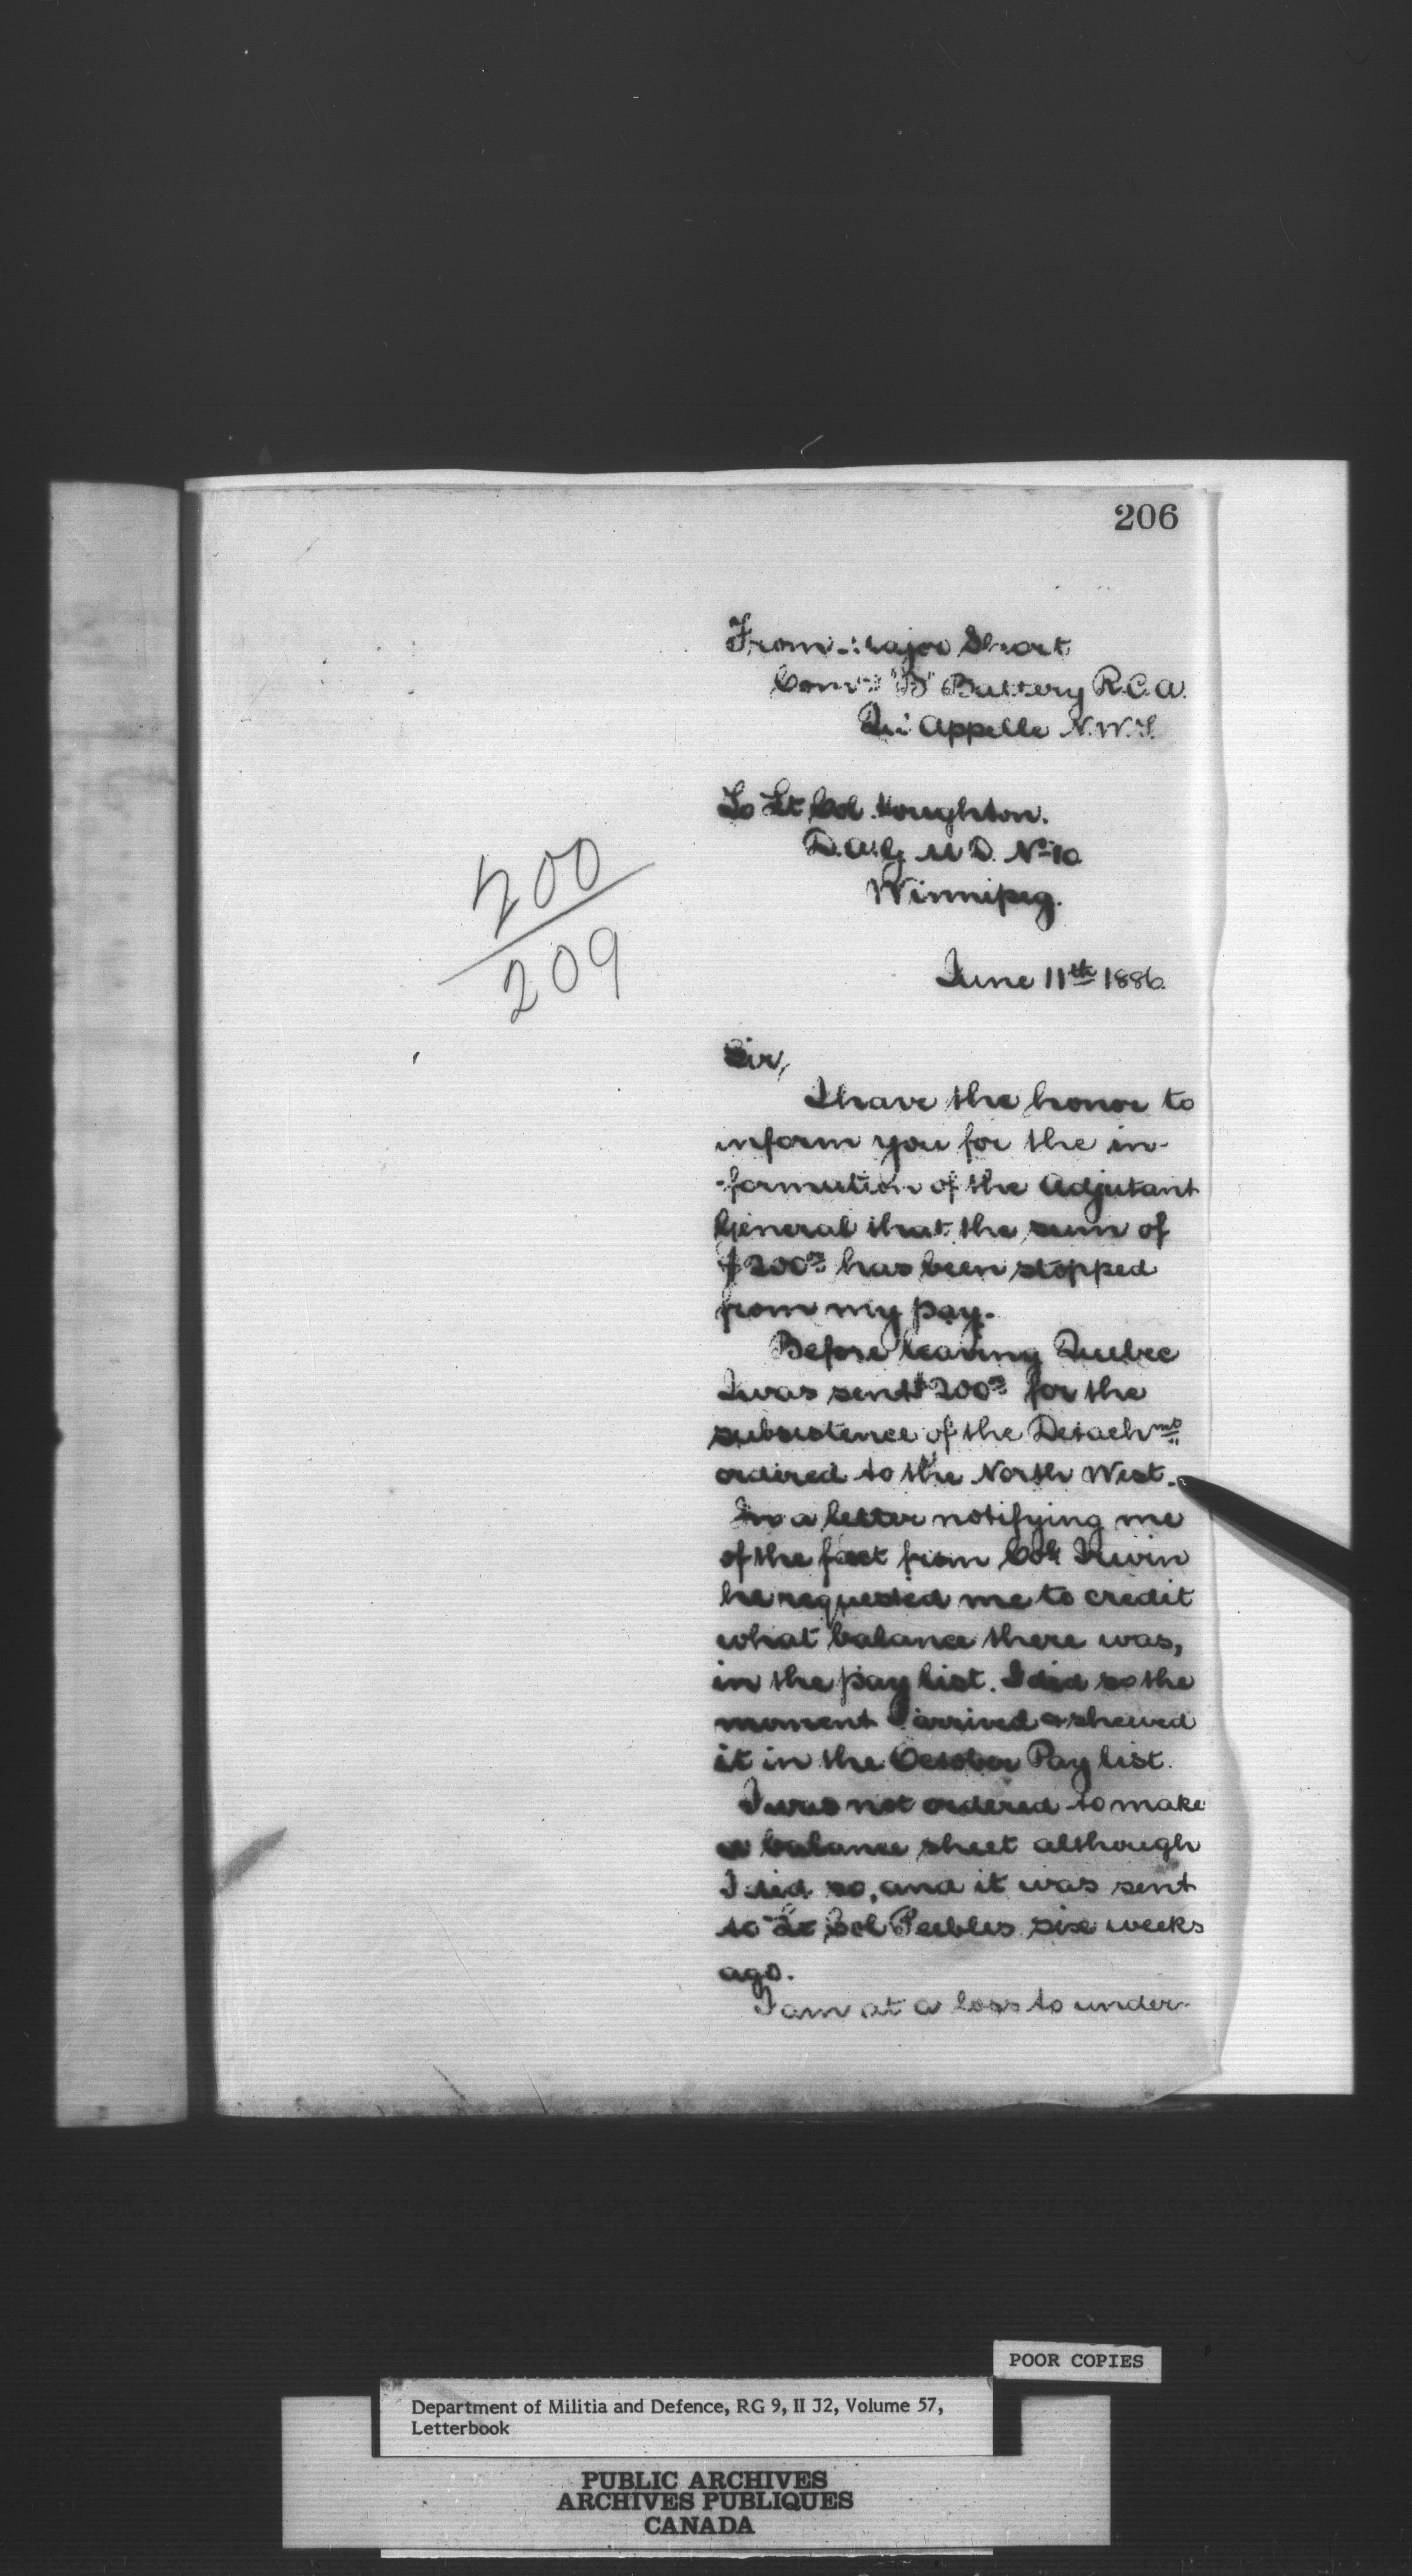 206
From Major Short
Comd'g "B" Battery R.C.A.
Qu'Appelle N.W.T.
To Lt Col Houghton.
D.A.G. M D. No 10
Winnipeg.
200
209
June 11th 1886.
Sir,
I have the honor to
inform you for the in-
-formation of the Adjutant
General that the sum of
$200.00 has been stopped
from my pay.
Before leaving Quebec
I was sent $200.00 for the
subsistence of the Detachmt
ordered to the North West.
In a letter notifying me
of the fact from Col Irwin
he requested me to credit
what balance there was,
in the pay list. I did so the
moment I arrived & shewed
it in the October Pay list.
I was not ordered to make
a balance sheet although
I did so, and it was sent
to Lt Col Peebles six weeks
ago.
I am at a loss to under-
POOR COPIES
Department of Militia and Defence, RG 9, II J2, Volume 57,
Letterbook
PUBLIC ARCHIVES
ARCHIVES PUBLIQUES
CANADA